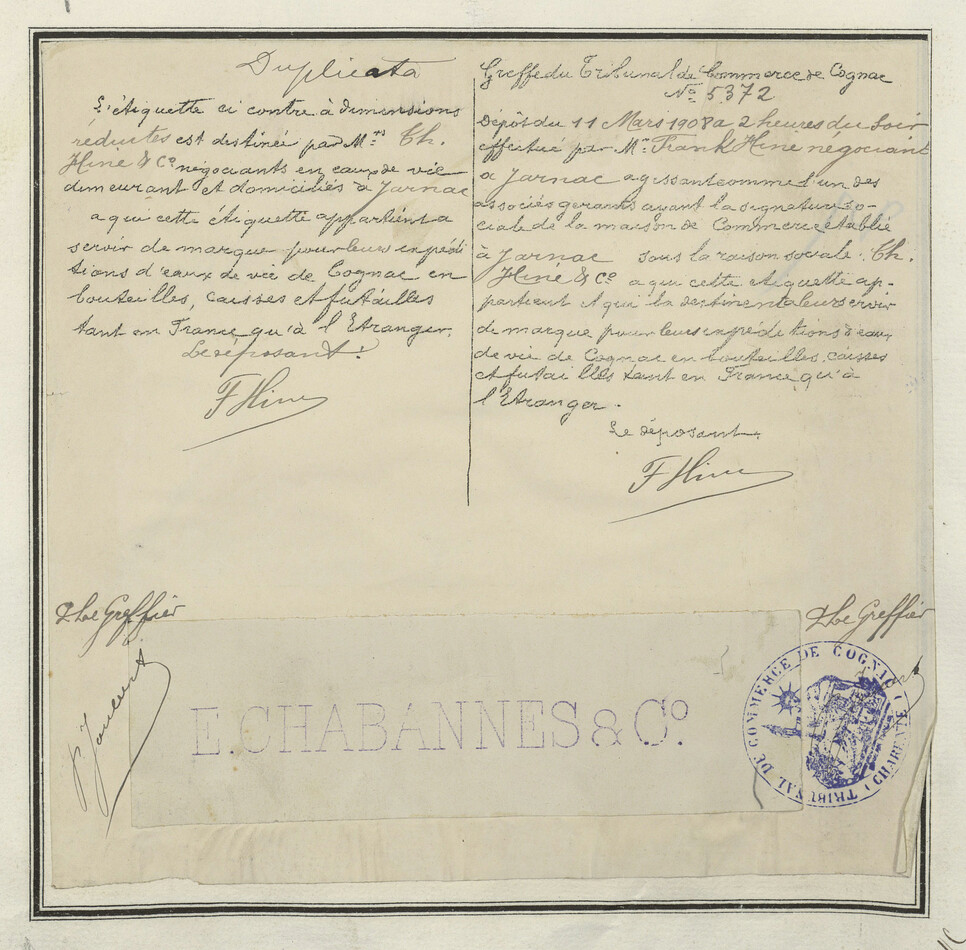 Duplicata
L'étiquette ci contre à dimensions
réduites est destinée par Mrs Th.
Hine & Co négociants en eaux de vie
dimeurant et domiciliés à Jarnac
a qui cette étiquette appartient a
servir de marque pour leurs expédi
tions d'eaux de vie de Cognac en
bouteilles, caisses et futailles
tant en France qu'à l'Etranger.
Le déposant:
F Hine
Greffe du Tribunal de Commerce de Cognac
No 5372
Dépôt du 11 Mars 1908 a 2 heures du Soir
effectué par Mr Frank Hine négociant
a Jarnac agissant comme l'un des
associés gerants ayant la signature so-
ciale de la maison de Commerce établie
à Jarnac sous la raison sociale: Th.
Hine & Co a qui cette etiquette ap-
partient et qui la destinent a leur servir
de marque pour leurs expéditions d'eaux
de vie de Cognac en bouteilles, caisses
et futailles tant en France qu'à
l'Etranger.
Le déposant.
F Hine
Le Greffier
Le Greffier
E. CHABANNES & Co.
TRIBUNAL DE COMMERCE DE COGNAC (CHARENTE)